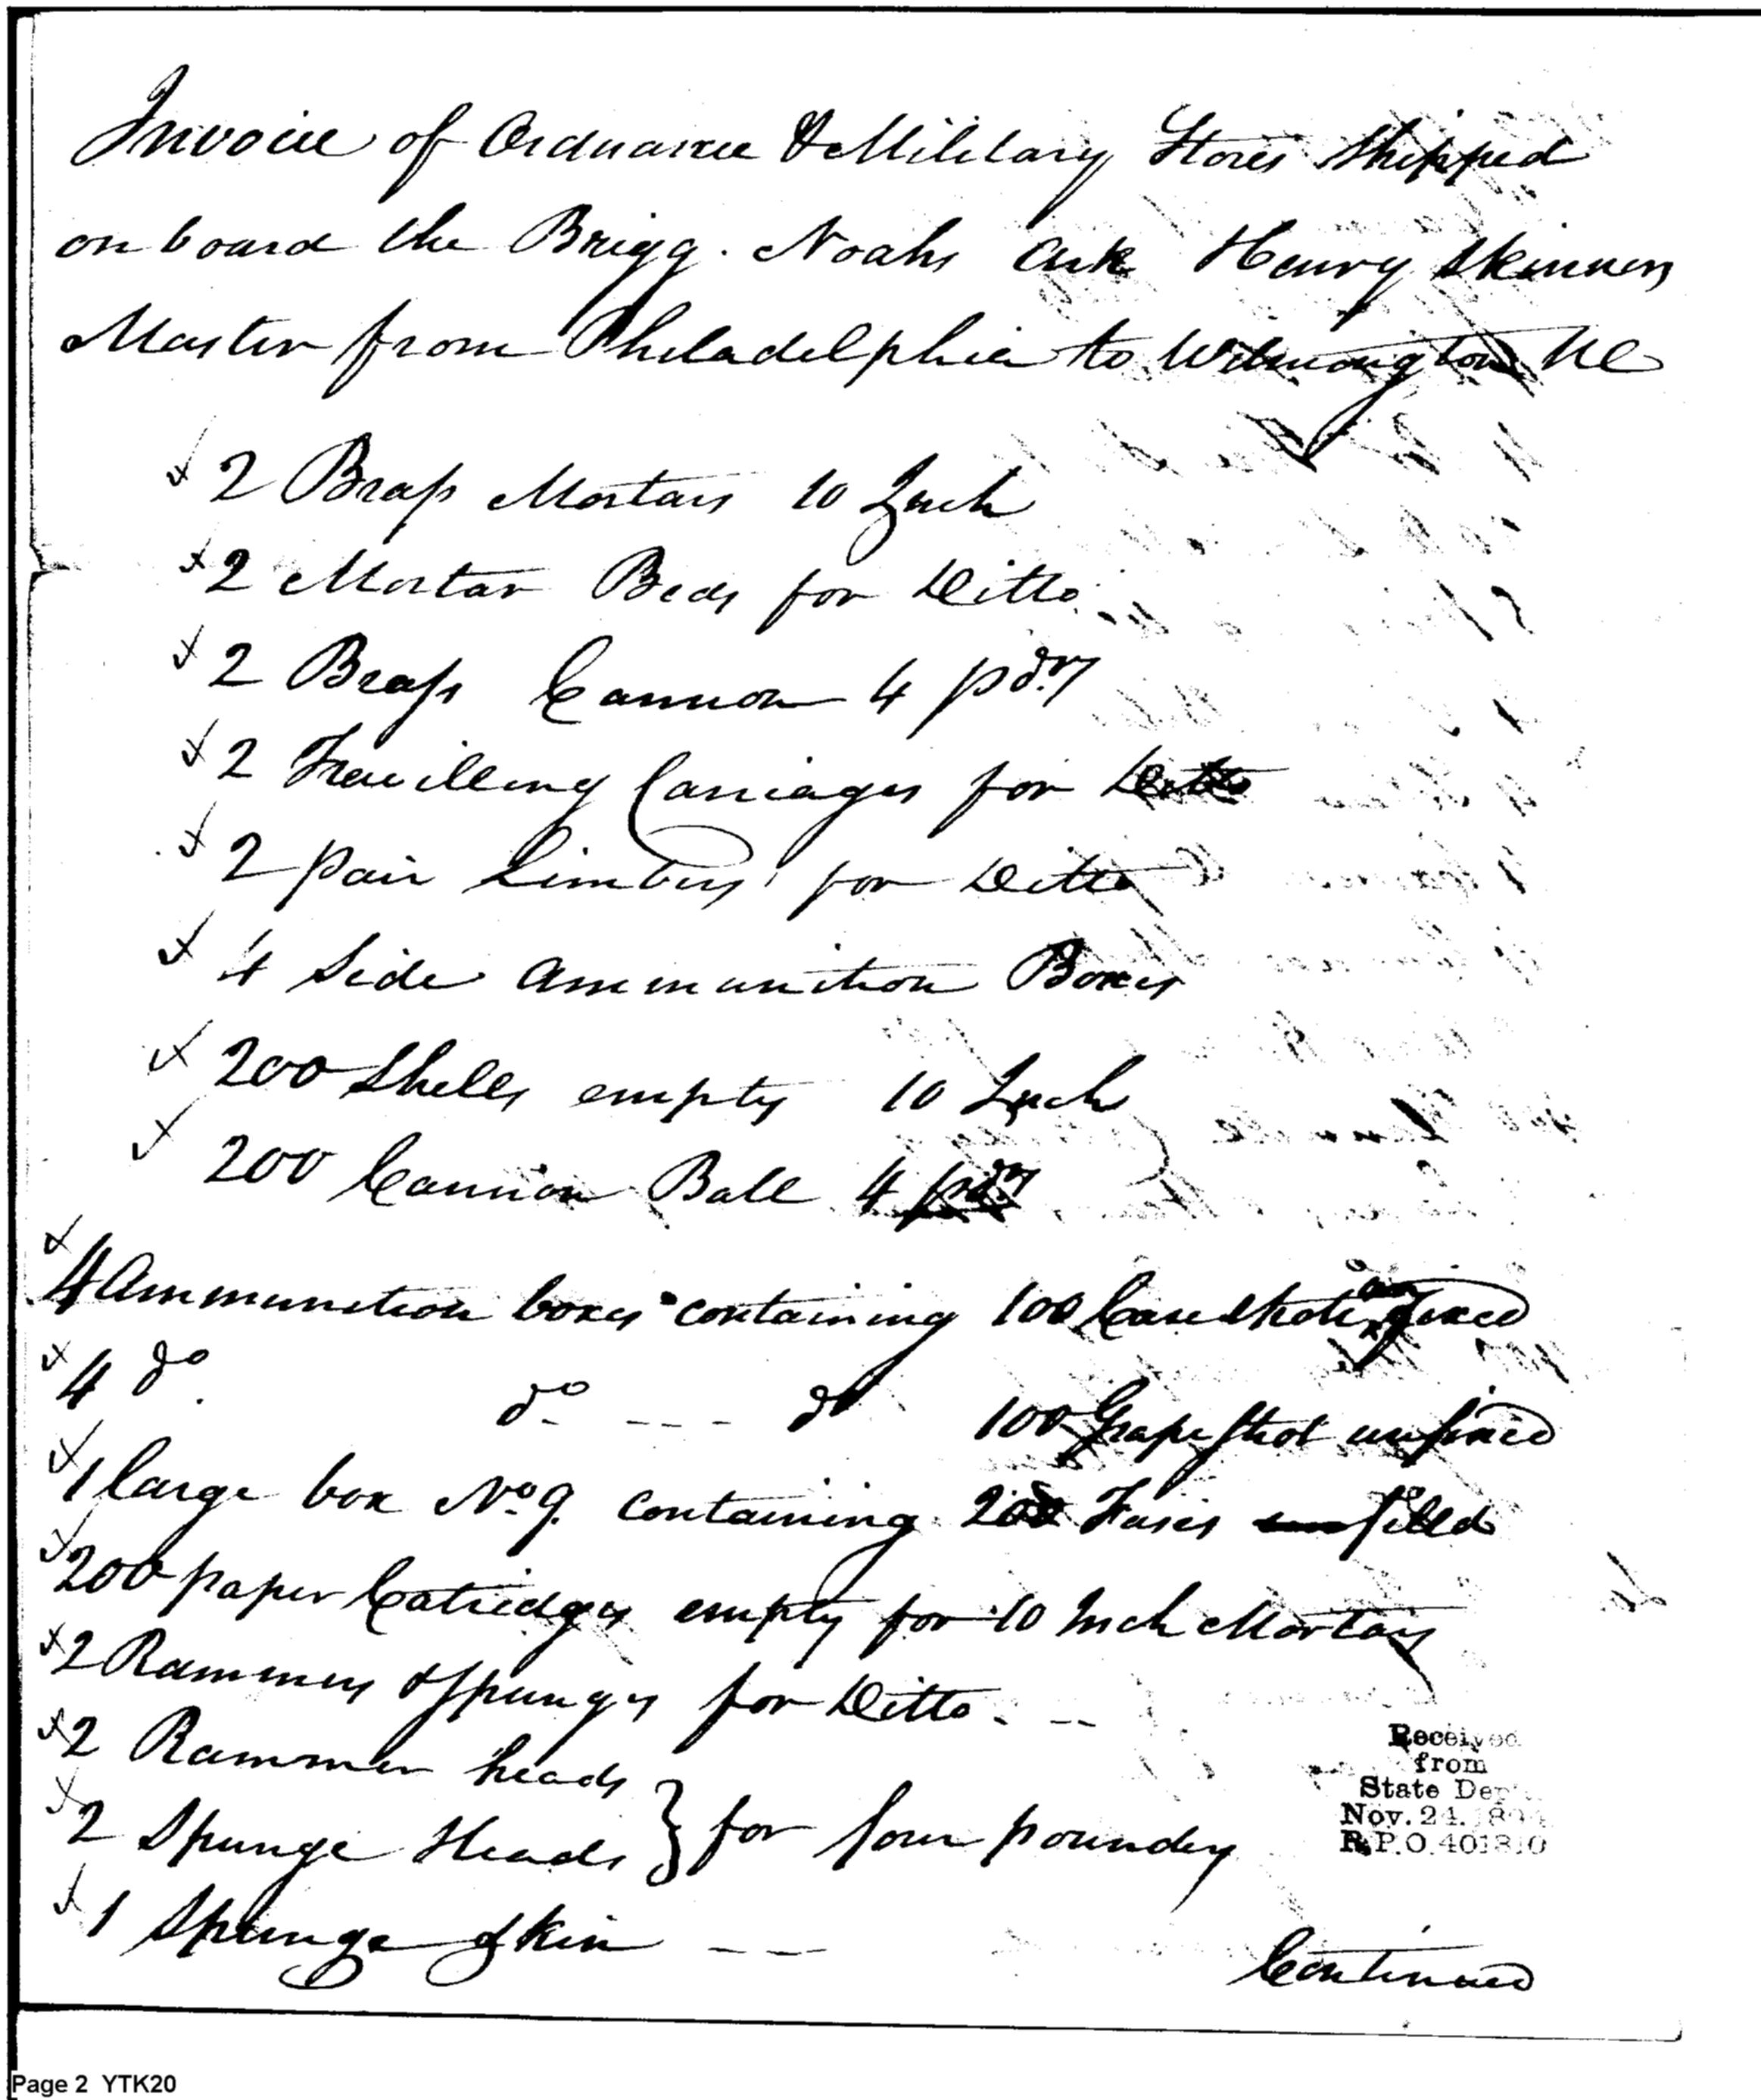 Invoice of Ordnance & Military Stores Shipped
on board the Brigg. Noahs Ark Henry Skinner
Master from Philadelphia to Wilmington NC
2 Brass Mortars 10 Inch
2 Mortar Beds for Ditto
2 Brass Cannon 4 pdrs
2 Travilling Carriages for Ditto
2 pair Limbers for Ditto
4 Side Ammunition Boxes
200 Shells empty 10 Inch
200 Cannon Ball 4 pdrs
4 Ammunition boxes containing 100 Case Shott fixed
4 do. do --- do 100 Grape Shot unfixed
1 large box No. 9. Containing 200 Fuses filled
200 paper Catridges empty for 10 Inch Mortars
2 Rammers & Spunges for Ditto. --
2 Rammer heads
2 Spunge Heads } for four pounders
1 Spunge Skin --
Received
from
State Dept.
Nov. 24. 1894
R.P.O. 401310
Continued
Page 2 YTK20